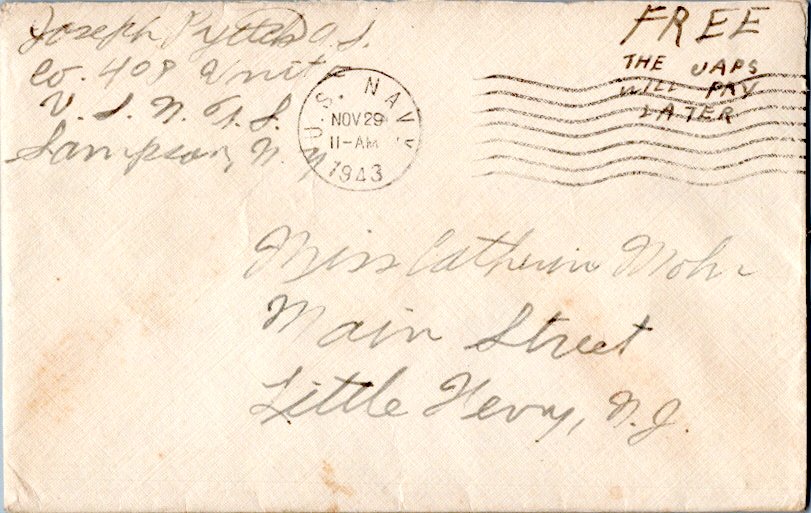 Joseph Pyttch A.S.
Co. 408 Unit F
U. S. N. T. S.
Sampson, N. Y.
U.S. NAVY
NOV 29
11-AM
1943
FREE
THE JAPS
WILL PAY
LATER
Miss Catherin Mohr
Main Street
Little Ferry, N.J.